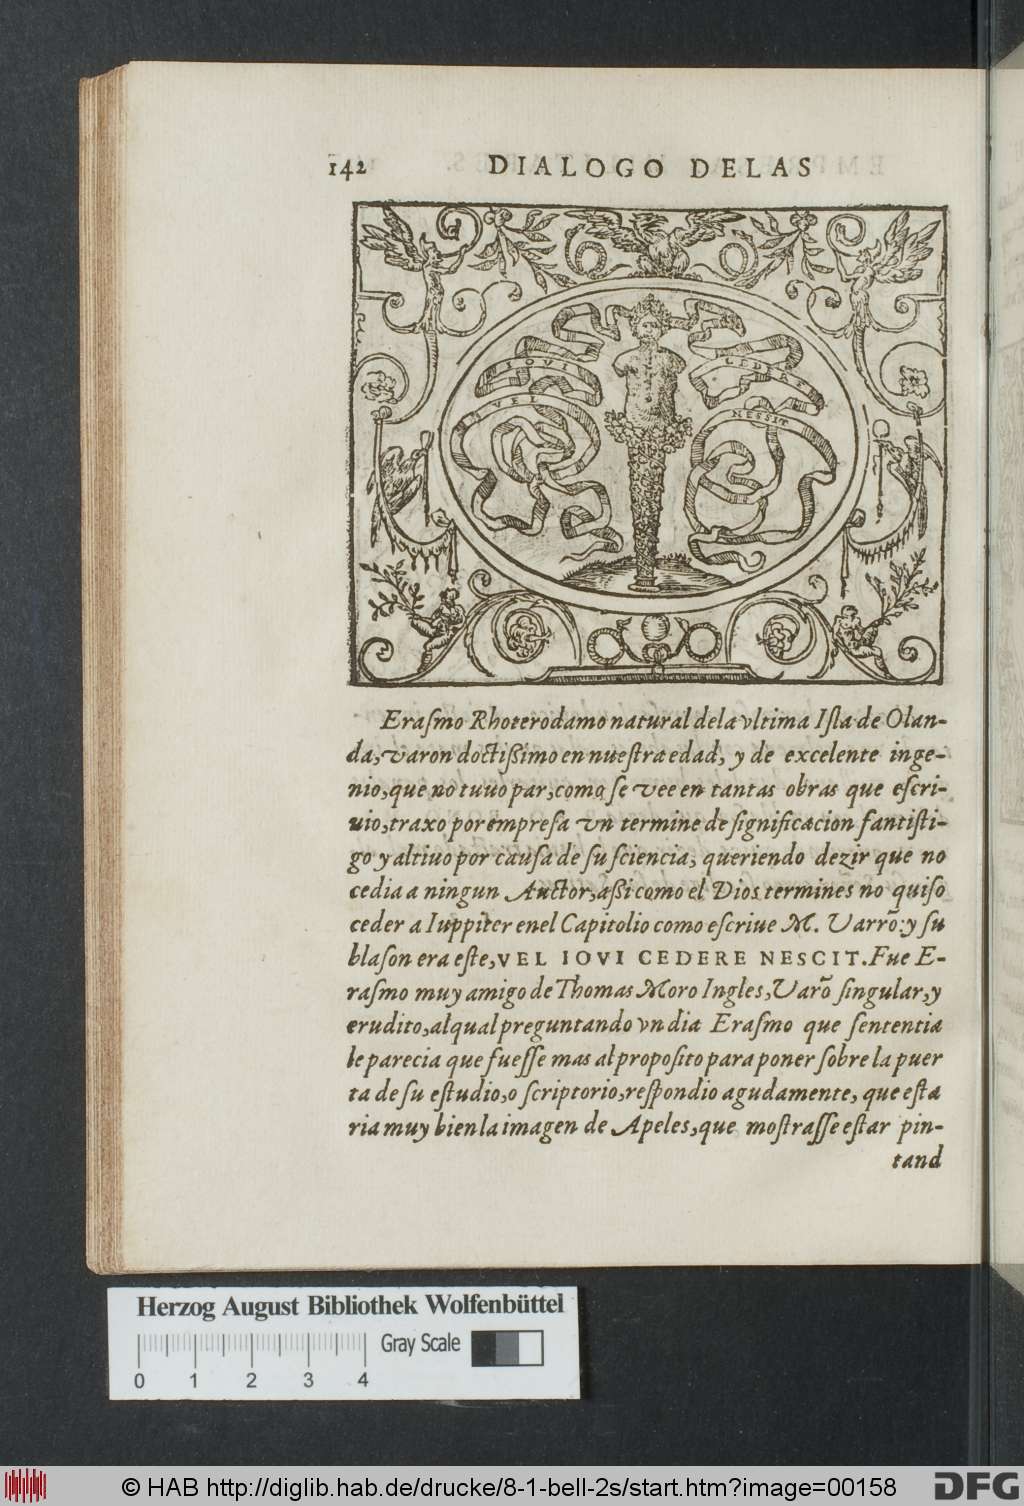 142 DIALOGO DELAS
IOVI
VEL
CEDERE
NESSIT
Eraſmo Rhoterodamo natural dela vltima Iſla de Olan-
da, varon doctißimo en nueſtra edad, y de excelente inge-
nio, que no tuuo par, como ſe vee en tantas obras que eſcri-
uio, traxo por empreſa vn termine de ſignificacion fantiſti-
go y altiuo por cauſa de ſu ſciencia, queriendo dezir que no
cedia a ningun Auctor, aßi como el Dios termines no quiſo
ceder a Iuppiter enel Capitolio como eſcriue M. Varrõ: y ſu
blaſon era eſte, VEL IOVI CEDERE NESCIT. Fue E-
raſmo muy amigo de Thomas Moro Ingles, Varõ ſingular, y
erudito, al qual preguntando vn dia Eraſmo que ſententia
le parecia que fueſſe mas al propoſito para poner ſobre la puer
ta de ſu eſtudio, o ſcriptorio, reſpondio agudamente, que eſta
ria muy bien la imagen de Apeles, que moſtraſſe eſtar pin-
tand
Herzog August Bibliothek Wolfenbüttel
Gray Scale
0 1 2 3 4
© HAB http://diglib.hab.de/drucke/8-1-bell-2s/start.htm?image=00158
DFG